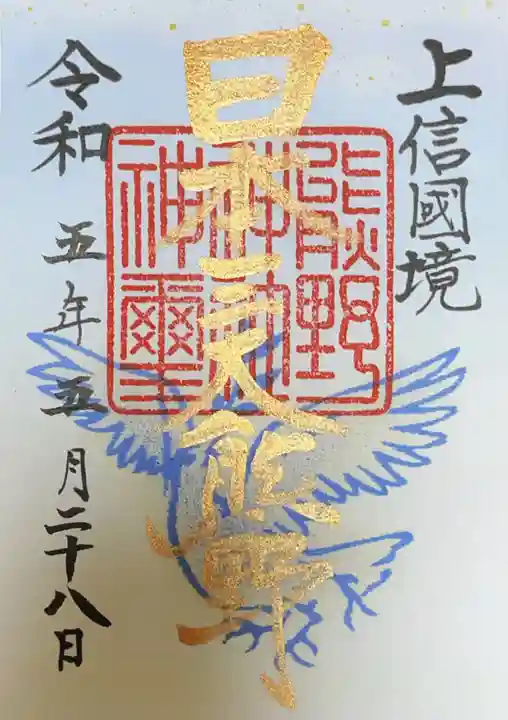 上信國境
日本三大熊野
熊野
神社
神璽
令和五年五月二十八日